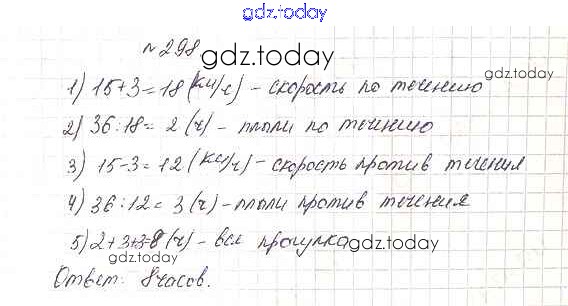 gdz.today
№298
gdz.today
1) 15+3=18 (км/ч) - скорость по течению
gdz.today
2) 36:18=2 (ч) - плыли по течению
3) 15-3=12 (км/ч) - скорость против течения
4) 36:12=3 (ч) - плыли против течения
5) 2+3+3=8 (ч) - вся прогулка
gdz.today
gdz.today
Ответ: 8 часов.